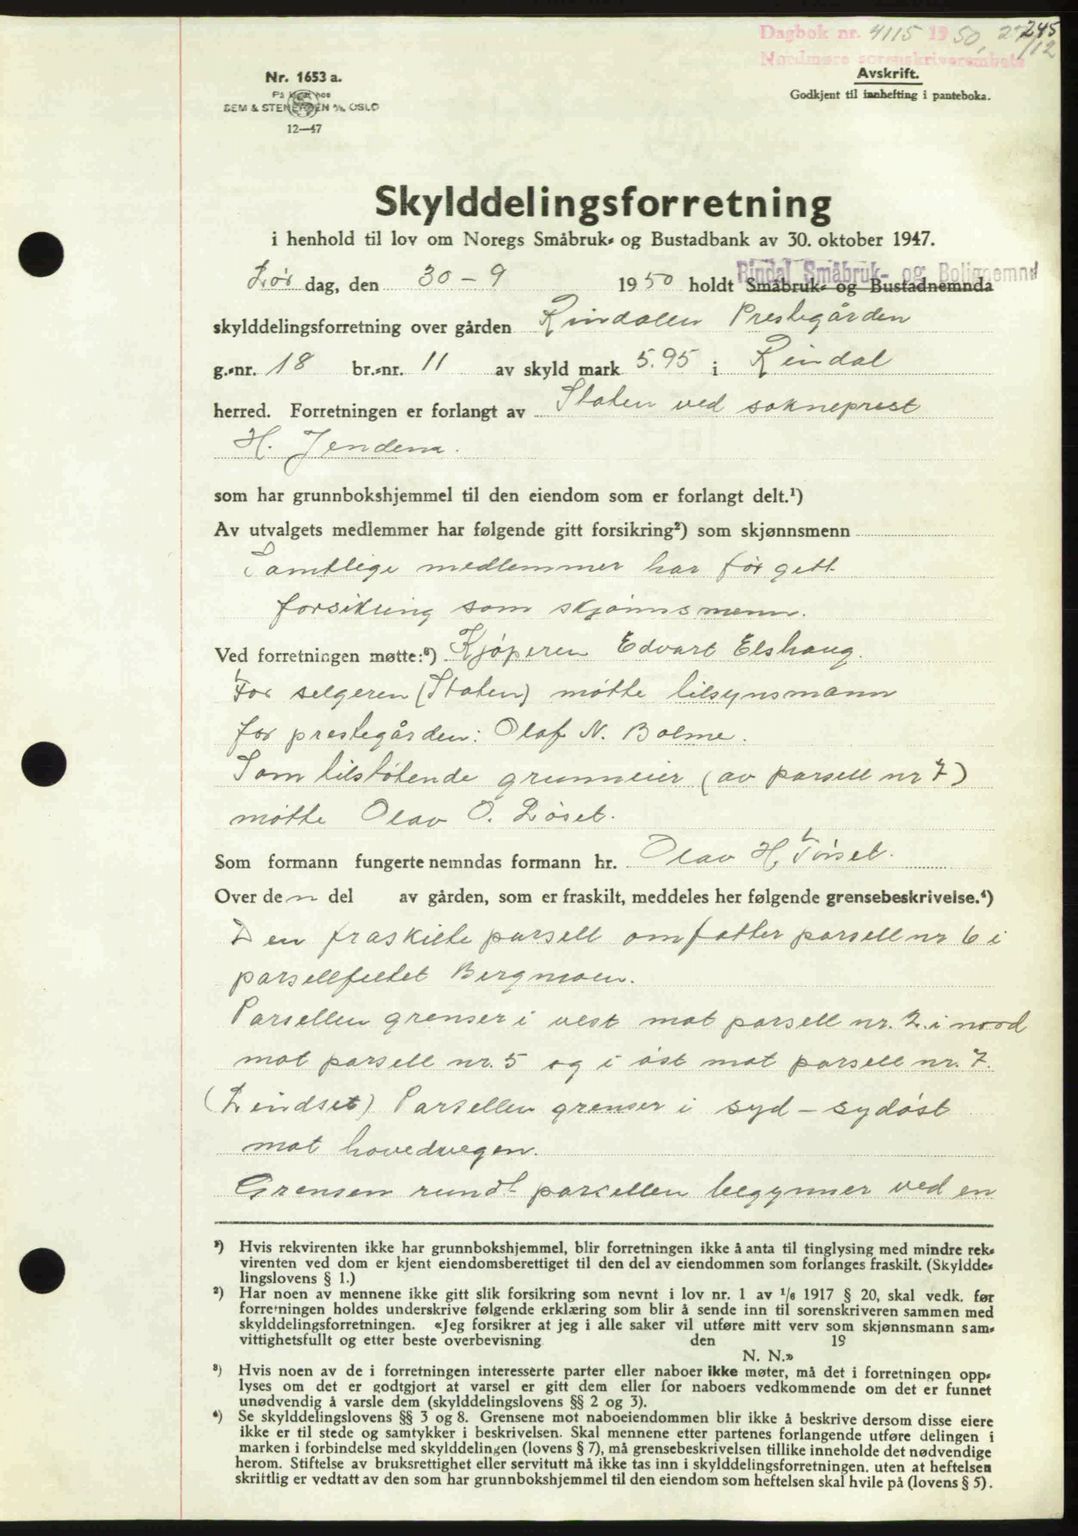 Dagbok nr. 4115 1950, 27/12
245
Nordmøre sorenskriverembete
Nr. 1653 a.
På lager hos
SEM & STENERSEN A/S OSLO
12—47
Avskrift.
Godkjent til innhefting i panteboka.
Skylddelingsforretning
i henhold til lov om Noregs Småbruk- og Bustadbank av 30. oktober 1947.
Rindal Småbruk- og Bolignemnd
Lør dag, den 30-9 1950 holdt Småbruk- og Bustadnemnda
skylddelingsforretning over gården Rindalen Prestegården
g.-nr. 18 br.-nr. 11 av skyld mark 5.95 i Rindal
herred. Forretningen er forlangt av Staten ved sokneprest
H. Jendem.
som har grunnbokshjemmel til den eiendom som er forlangt delt.¹)
Av utvalgets medlemmer har følgende gitt forsikring²) som skjønnsmenn
Samtlige medlemmer har før gett
forsikring som skjønnsmenn.
Ved forretningen møtte:³) Kjøperen Edvart Elshaug.
For selgeren (Staten) møtte tilsynsmann
for prestegården: Olaf N. Bolme.
Som tilstøtende grunneier (av parsell nr 7)
møtte Olav O. Løset.
Som formann fungerte nemndas formann hr. Olav H. Tørset.
Over den del av gården, som er fraskilt, meddeles her følgende grensebeskrivelse.⁴)
Den fraskilte parsell omfatter parsell nr 6 i
parsellfeltet Bergmoen.
Parsellen grenser i vest mot parsell nr. 2. i nord
mot parsell nr. 5 og i øst mot parsell nr. 7.
(Lindset) Parsellen grenser i syd – sydøst
mot hovedvegen.
Grensen rundt parsellen begynner ved en
¹) Hvis rekvirenten ikke har grunnbokshjemmel, blir forretningen ikke å anta til tinglysing med mindre rek-
virenten ved dom er kjent eiendomsberettiget til den del av eiendommen som forlanges fraskilt. (Skyldde-
lingslovens § 1.)
²) Har noen av mennene ikke gitt slik forsikring som nevnt i lov nr. 1 av ¹/₆ 1917 § 20, skal vedk. før
forretningen holdes underskrive følgende erklæring som blir å sende inn til sorenskriveren sammen med
skylddelingsforretningen. «Jeg forsikrer at jeg i alle saker vil utføre mitt verv som skjønnsmann sam-
vittighetsfullt og etter beste overbevisning den 19
N. N.»
³) Hvis noen av de i forretningen interesserte parter eller naboer ikke møter, må det i forretningen opp-
lyses om det er godtgjort at varsel er gitt dem eller for naboers vedkommende om det er funnet
unødvendig å varsle dem (skylddelingslovens §§ 2 og 3).
⁴) Se skylddelingslovens §§ 3 og 8. Grensene mot naboeiendommen blir ikke å beskrive dersom disse eiere
ikke er til stede og samtykker i beskrivelsen. Skal mennene etter partenes forlangende utføre delingen i
marken i forbindelse med skylddelingen (lovens § 7), må grensebeskrivelsen tillike inneholde det nødvendige
herom. Stiftelse av bruksrettighet eller servitutt må ikke tas inn i skylddelingsforretningen, uten at heftelsen
skriftlig er vedtatt av den som har grunnbokshjemmel til den eiendom som heftelsen skal hvile på (lovens § 5).